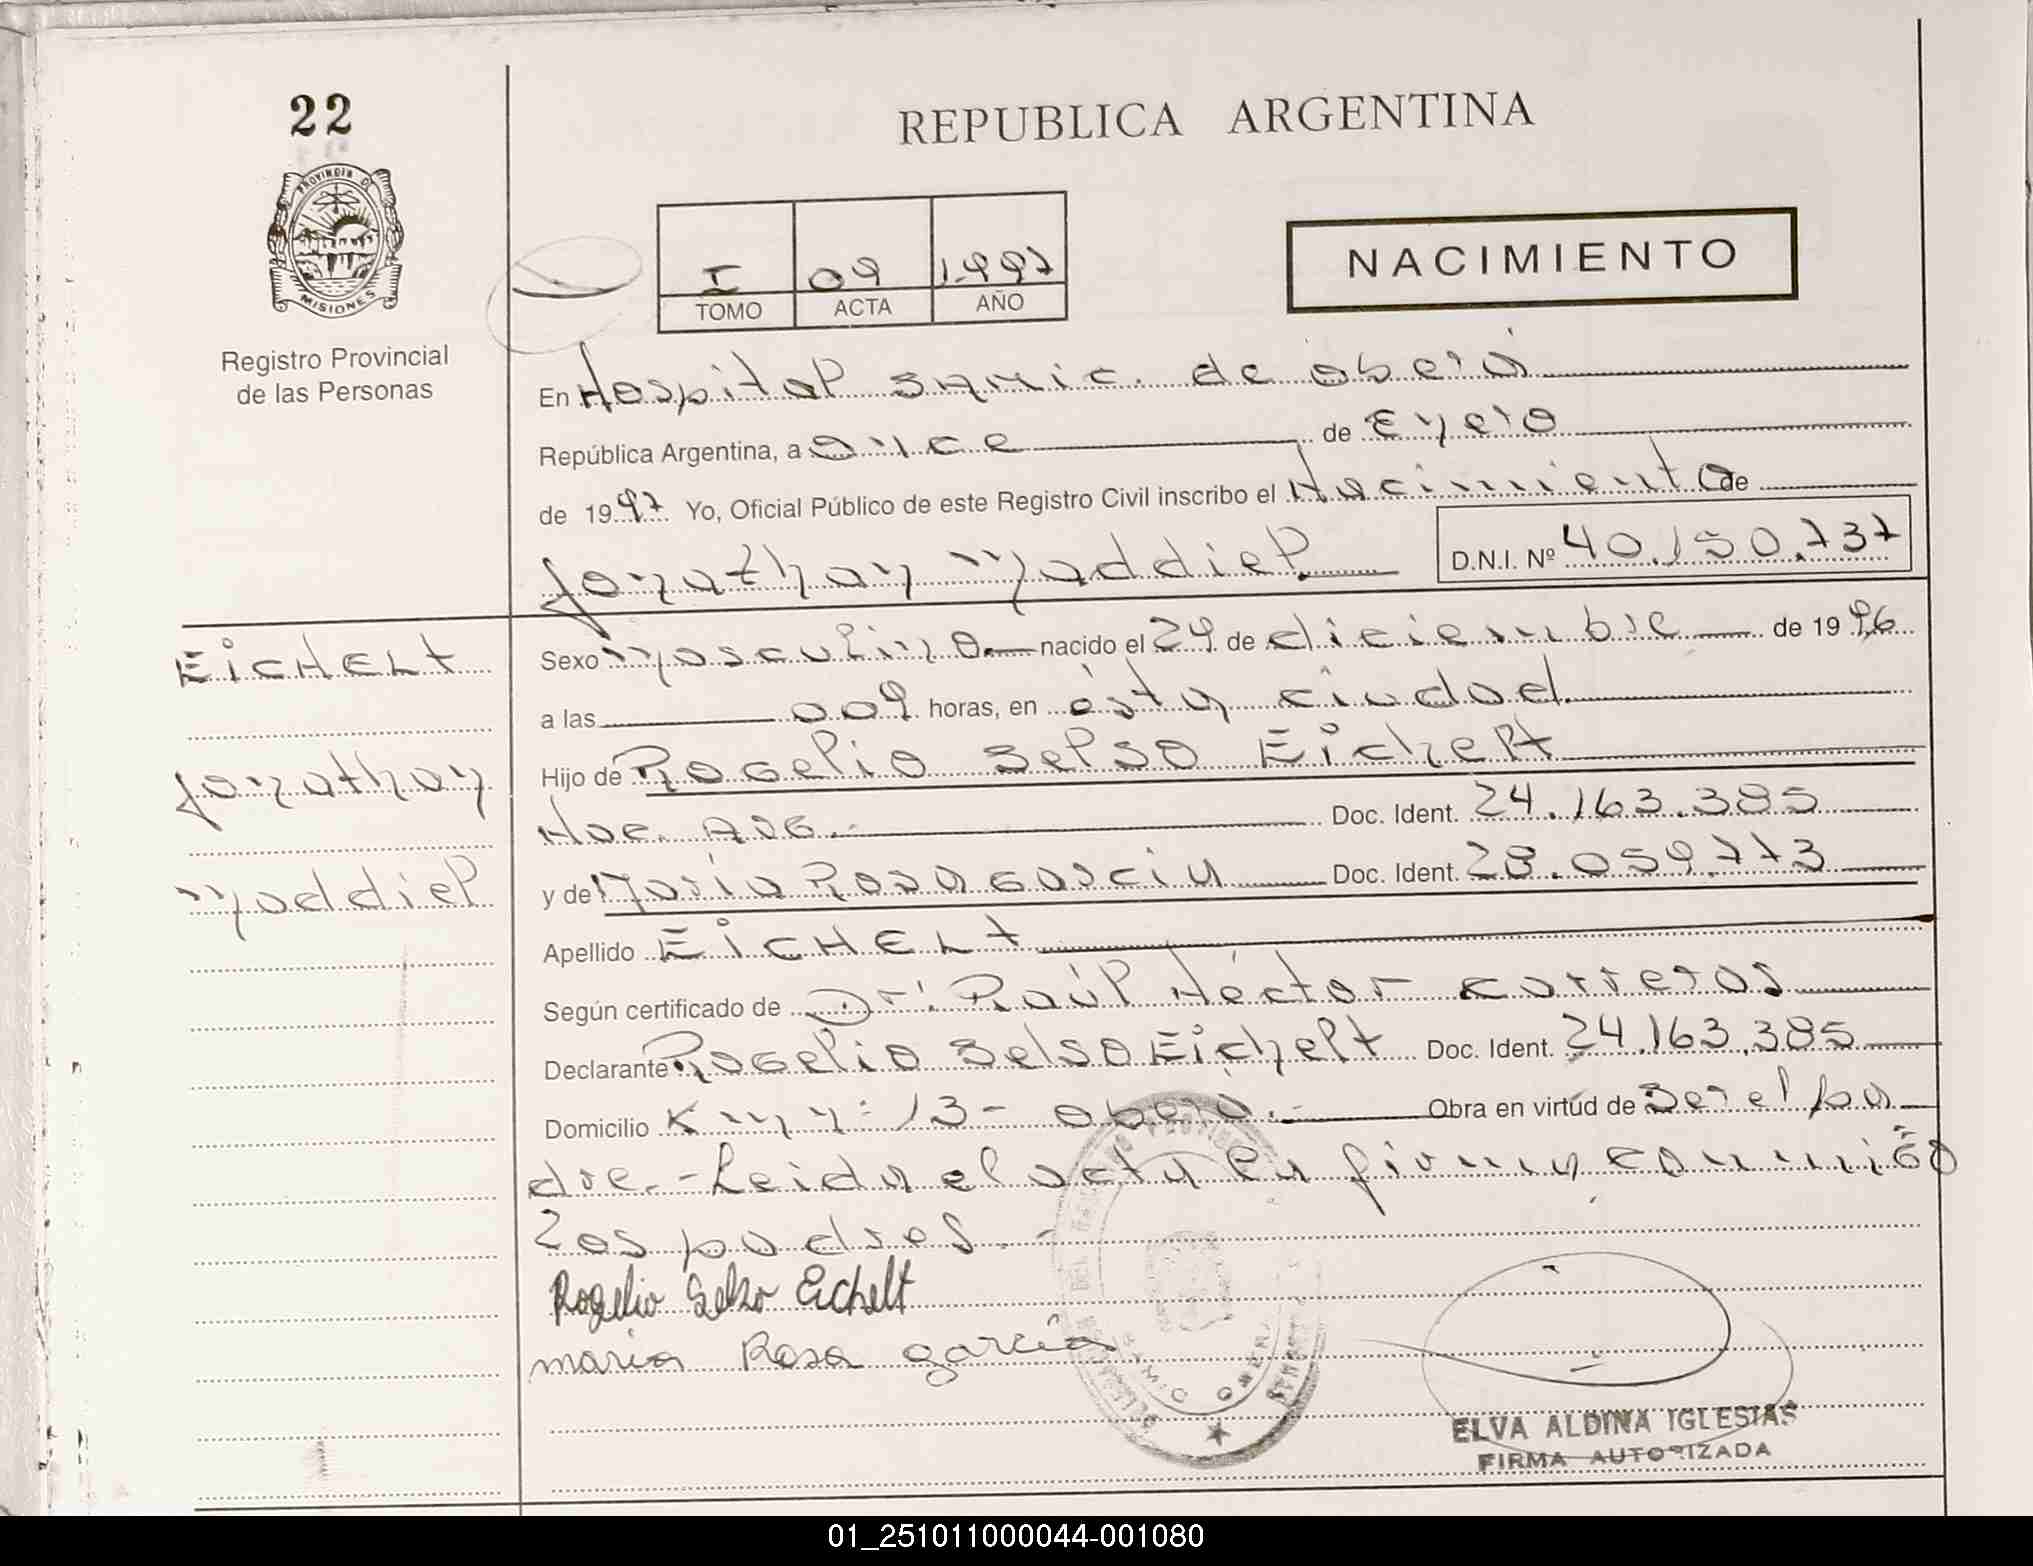 22
REPUBLICA ARGENTINA
PROVINCIA DE
MISIONES
Registro Provincial
de las Personas
I 09 1997
TOMO ACTA AÑO
NACIMIENTO
En Hospital Samic. de oberá
República Argentina, a once de Enero
de 1997 Yo, Oficial Público de este Registro Civil inscribo el Nacimiento de
Jonathan Maddiel D.N.I. Nº 40.150.737
EicHELt
Jonathan
Maddiel
Sexo Masculino nacido el 29 de diciembre de 1996
a las 009 horas, en ésta ciudad.
Hijo de Rogelio Selso Eichelt
Nac. ARG.- Doc. Ident. 24.163.385
y de María Rosa García Doc. Ident. 28.059.773
Apellido EicHELt
Según certificado de Dr. Raúl Héctor Carreras
Declarante Rogelio Selso Eichelt Doc. Ident. 24.163.385
Domicilio Km: 13- oberá.- Obra en virtúd de Ser el pa
dre.-Leida el acta la firman conmigo
Los padres.-
Rogelio Selso Eichelt
maria Rosa garcía
ELVA ALDINA IGLESIAS
FIRMA AUTORIZADA
01_251011000044-001080